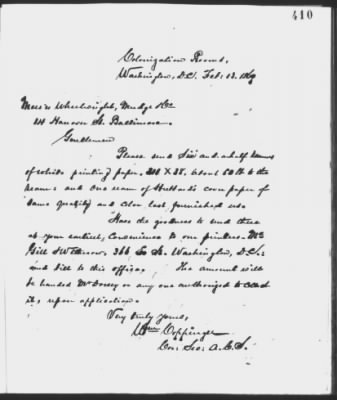 410
Colonization Rooms,
Washington, D.C. Feb. 13. 1869
Messrs Wheelwright, Mudge & Co.
Hanover St. Baltimore.
Gentlemen
Please send Six and a half reams
of white printing paper, 24 X 38, about 50 lb to the
ream: and One ream of Hubbard's cover paper of
same quality and color last furnished us.
Have the goodness to send these
at your earliest convenience to our printers Mc
Gill & Witherow, 366 St. Washington, D.C.:
and bill to this office. The amount will
be handed Mr Dorsey or any one authorized to collect
it, upon application.
Very truly yours,
Wm Coppinger
Cor: Sec: A.C.S.